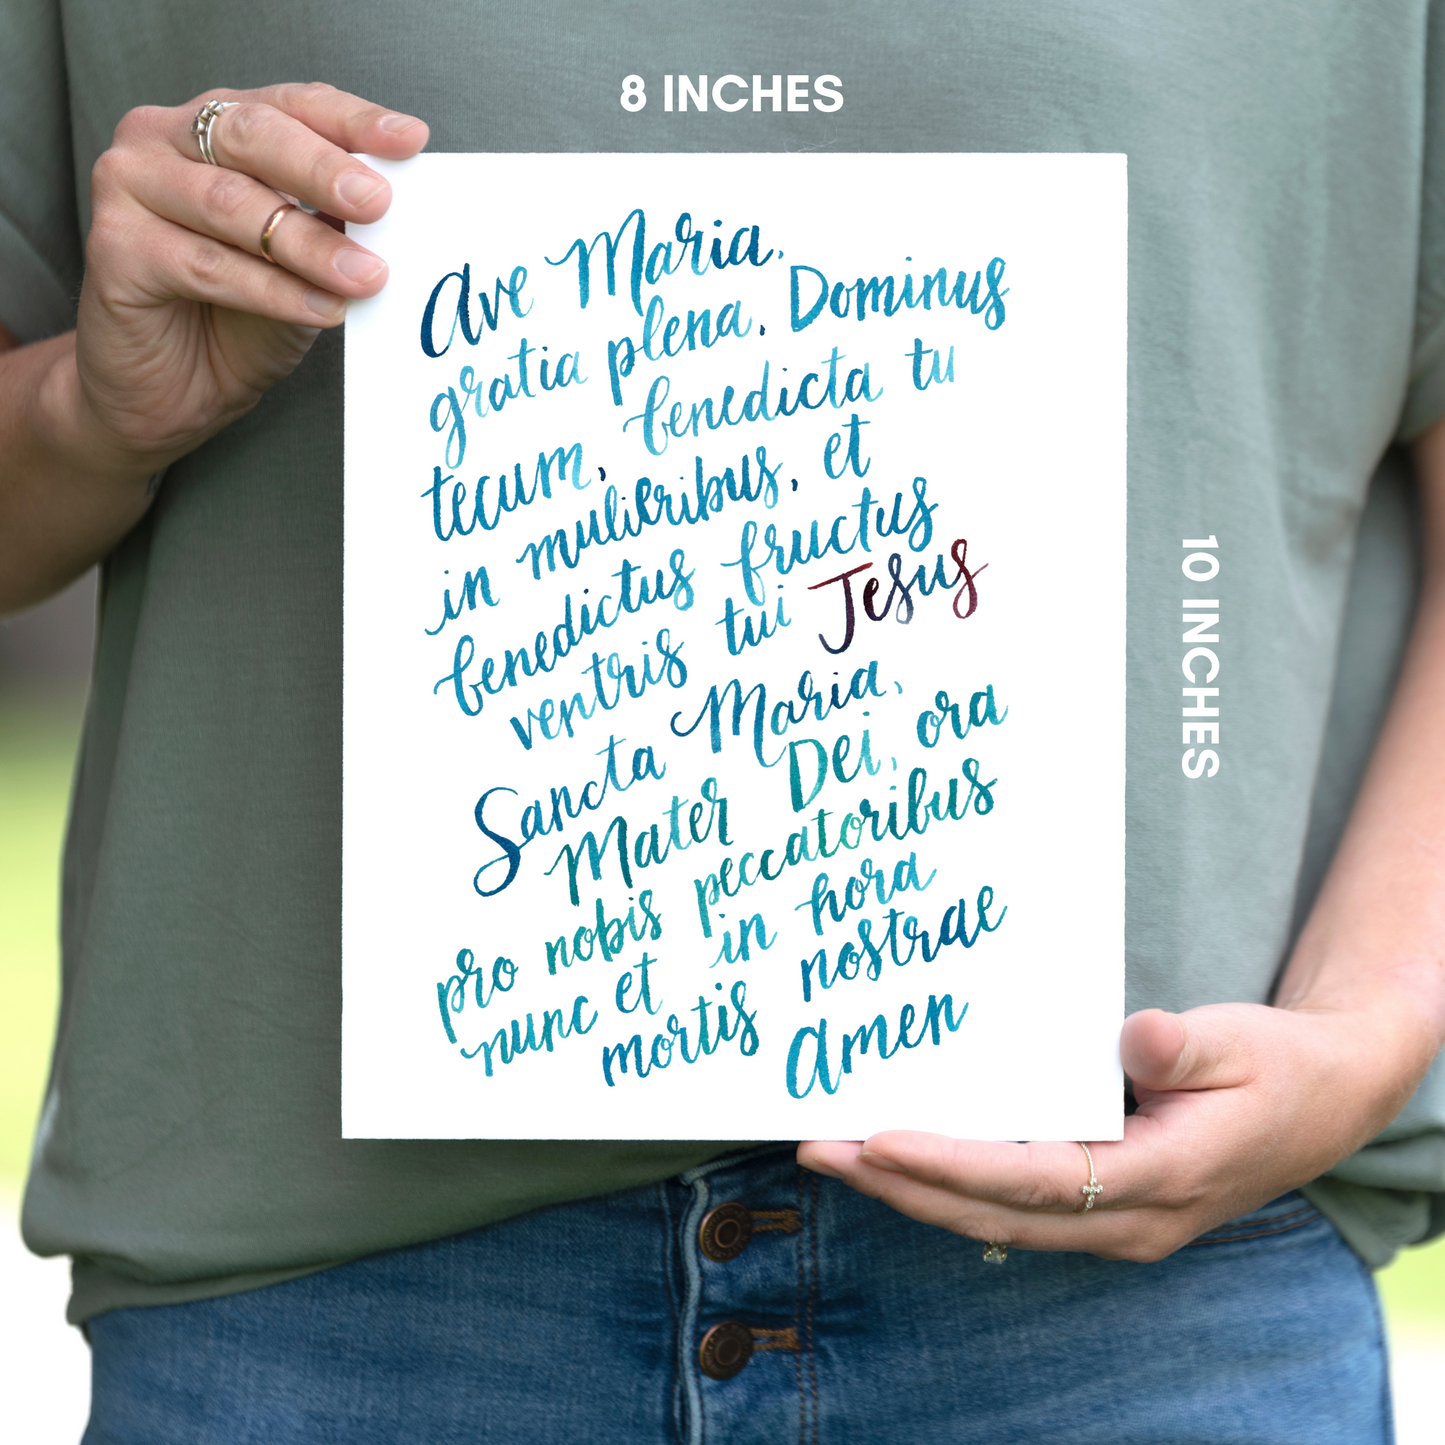 8 INCHES
Ave Maria,
gratia plena, Dominus
tecum, benedicta tu
in mulieribus, et
benedictus fructus
ventris tui Jesus
Sancta Maria,
Mater Dei, ora
pro nobis peccatoribus
nunc et in hora
mortis nostrae
Amen
10 INCHES